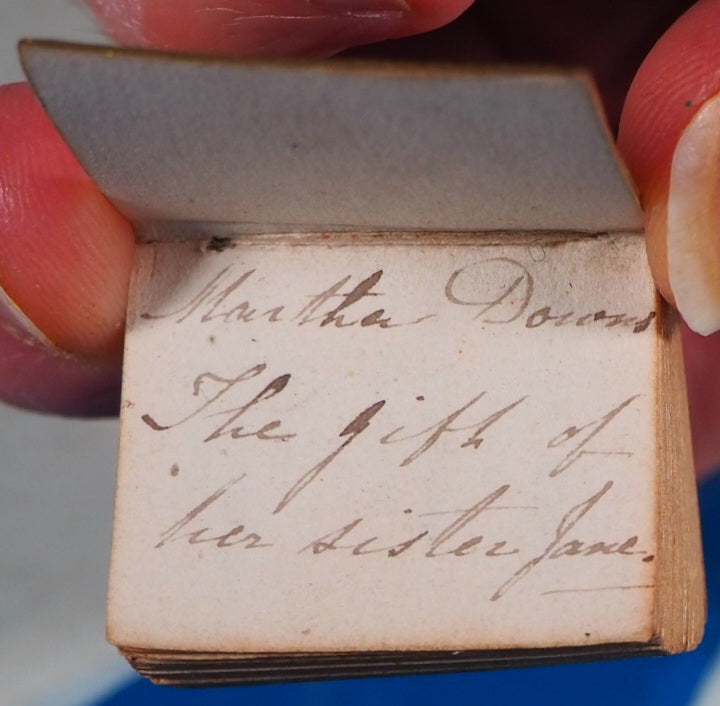 Martha Downs
The gift of
her sister Jane.